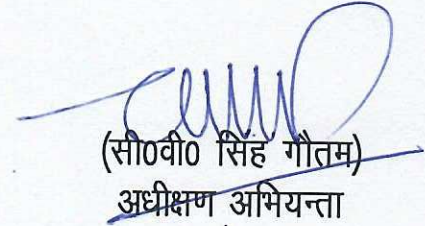 (सी0वी0 सिंह गौतम)
अधीक्षण अभियन्ता